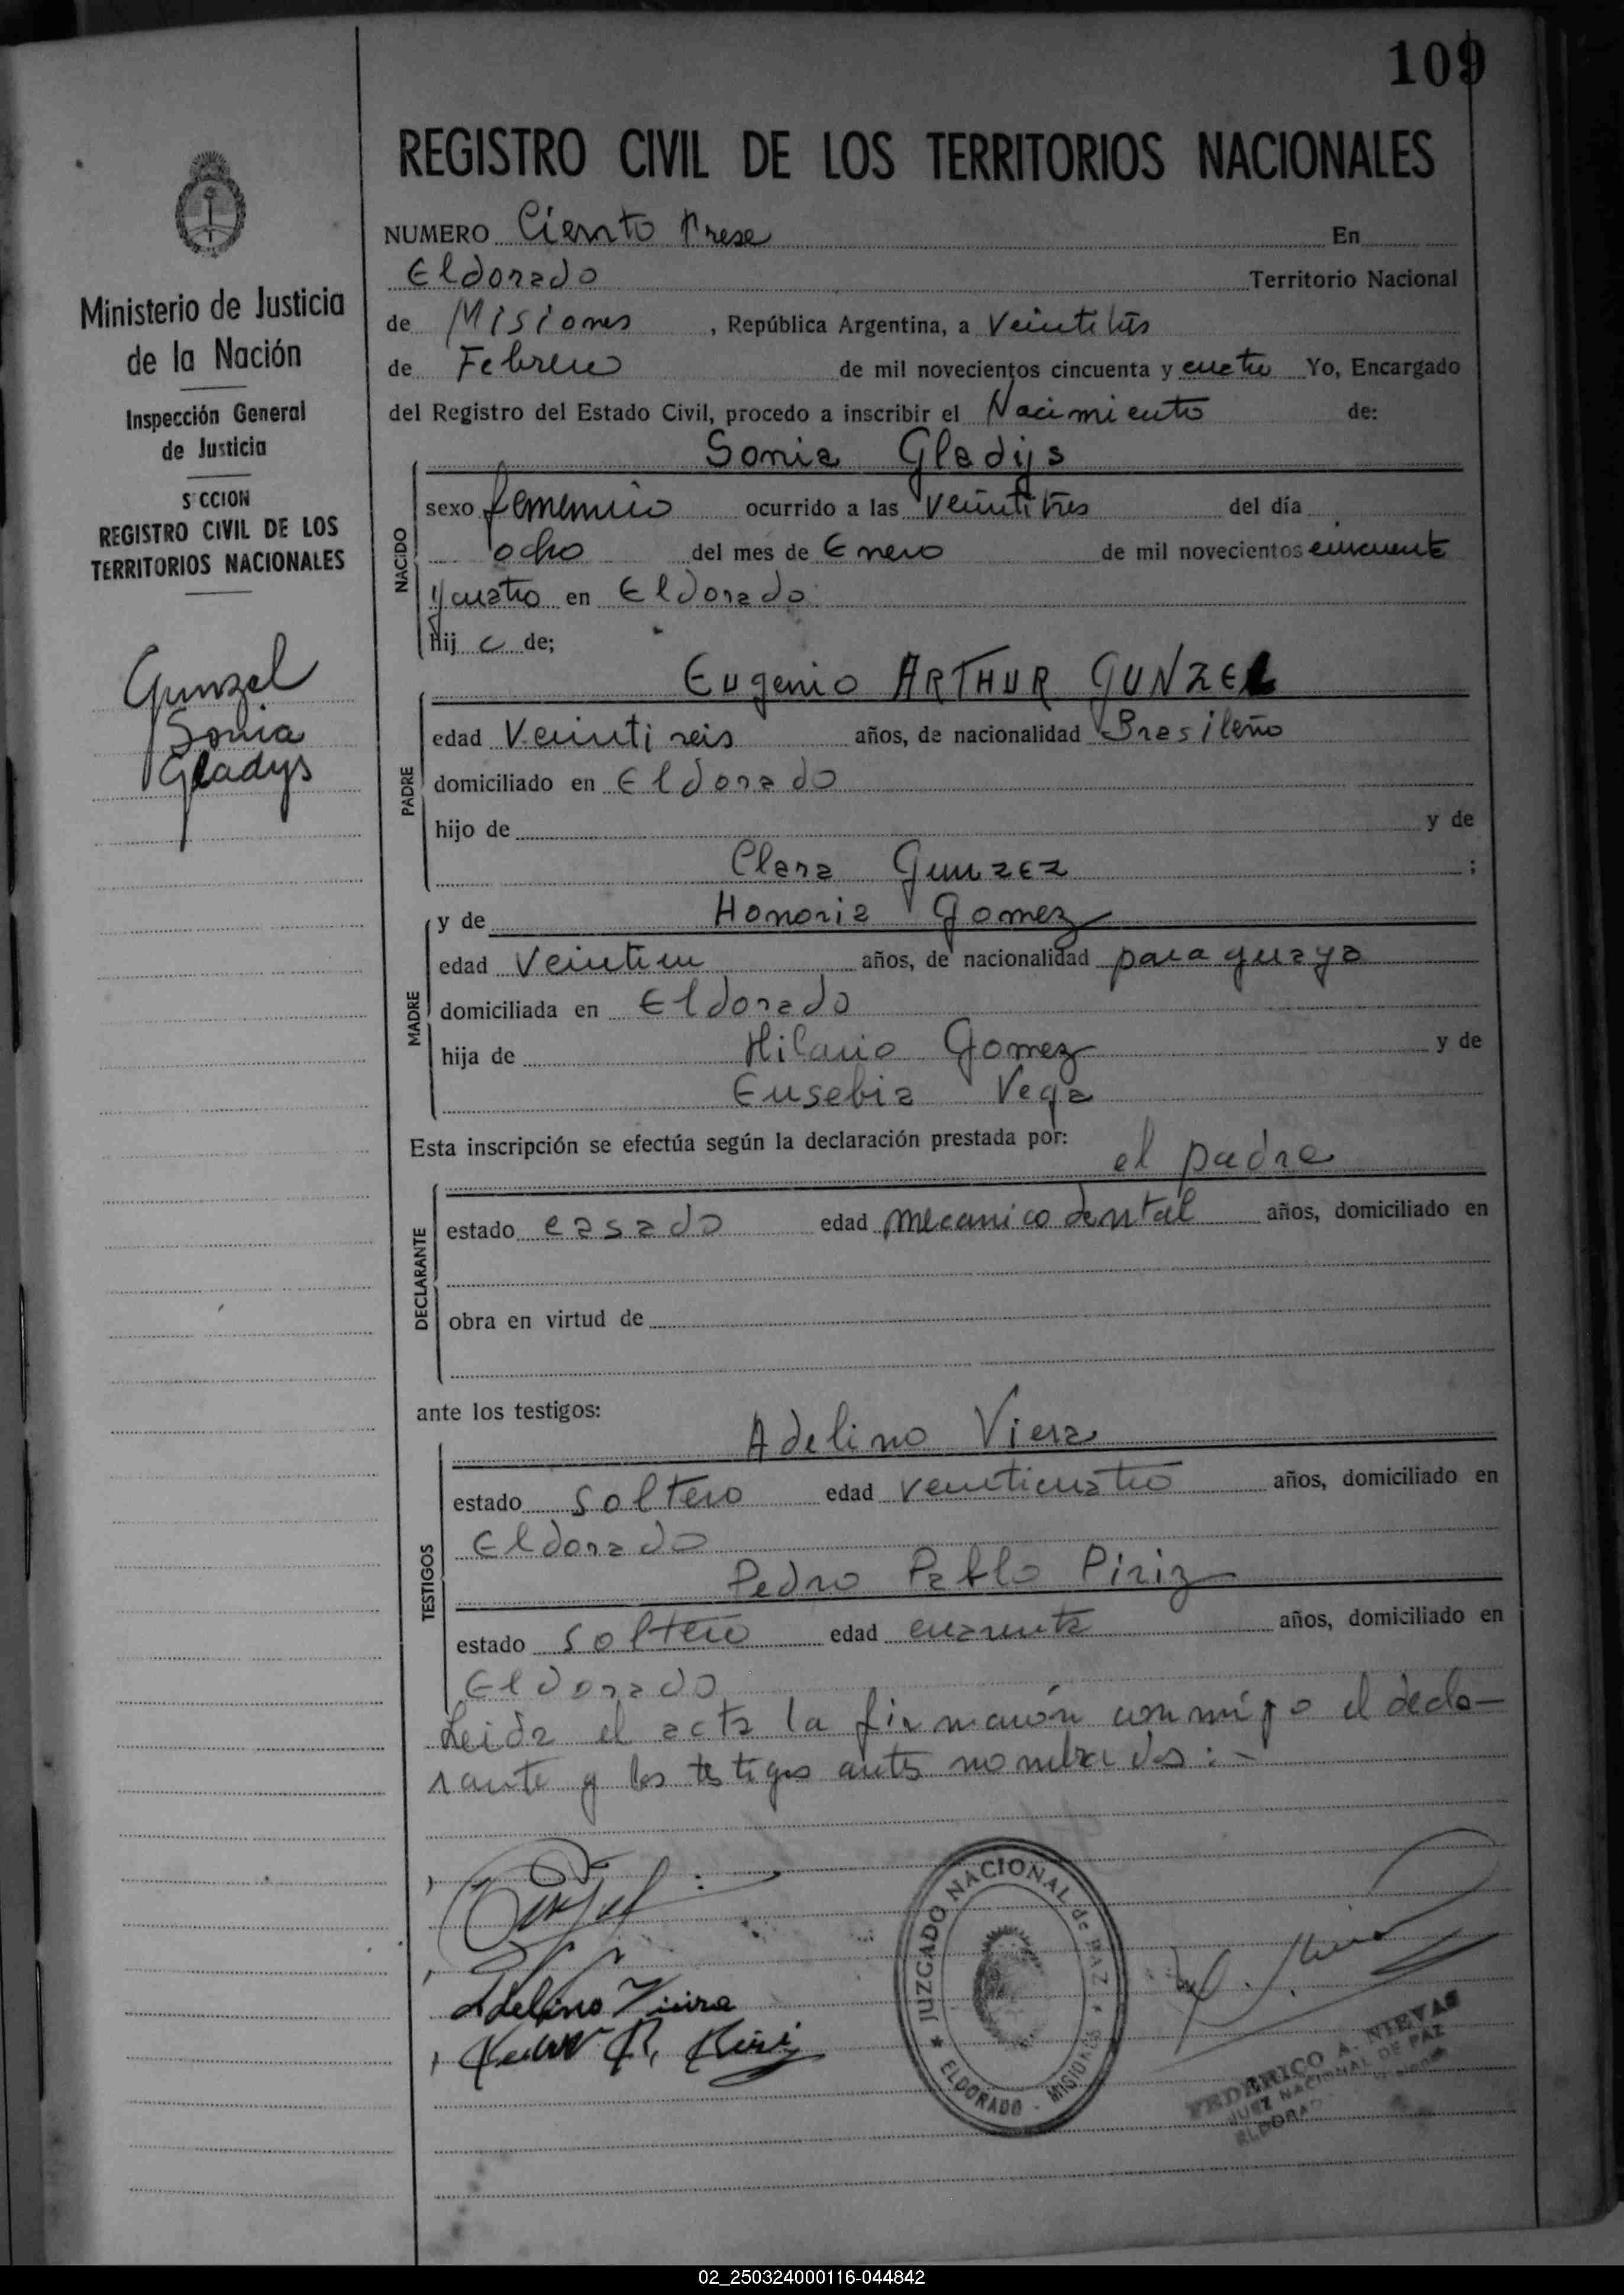 109
REGISTRO CIVIL DE LOS TERRITORIOS NACIONALES
NUMERO Ciento Trese En
Eldorado Territorio Nacional
de Misiones , República Argentina, a Veintitrés
de Febrero de mil novecientos cincuenta y cuatro Yo, Encargado
del Registro del Estado Civil, procedo a inscribir el Nacimiento de:
Sonia Gladys
NACIDO
sexo femenino ocurrido a las Veintitres del día
ocho del mes de Enero de mil novecientos cincuenta
y cuatro en Eldorado
hij a de;
Eugenio ARTHUR GUNZEL
PADRE
edad Veintiseis años, de nacionalidad Brasileño
domiciliado en Eldorado
hijo de y de
Clara Gunzez ;
MADRE
y de Honoria Gomez
edad Veintiun años, de nacionalidad paraguaya
domiciliada en Eldorado
hija de Hilario Gomez y de
Eusebia Vega
Esta inscripción se efectúa según la declaración prestada por:
el padre
DECLARANTE
estado casado edad mecanico dental años, domiciliado en
obra en virtud de
ante los testigos:
Adelino Viera
TESTIGOS
estado soltero edad veinticuatro años, domiciliado en
Eldorado
Pedro Pablo Piriz
estado soltero edad cuarenta años, domiciliado en
Eldorado
Leida el acta la firmarón conmigo el decla-
rante y los testigos antes nombrados:-
Adelino Vieira
JUZGADO NACIONAL de PAZ
ELDORADO - MISIONES
FEDERICO A. NIEVAS
JUEZ NACIONAL DE PAZ
Ministerio de Justicia
de la Nación
Inspección General
de Justicia
S CCION
REGISTRO CIVIL DE LOS
TERRITORIOS NACIONALES
Gunzel
Sonia
Gladys
02_250324000116-044842